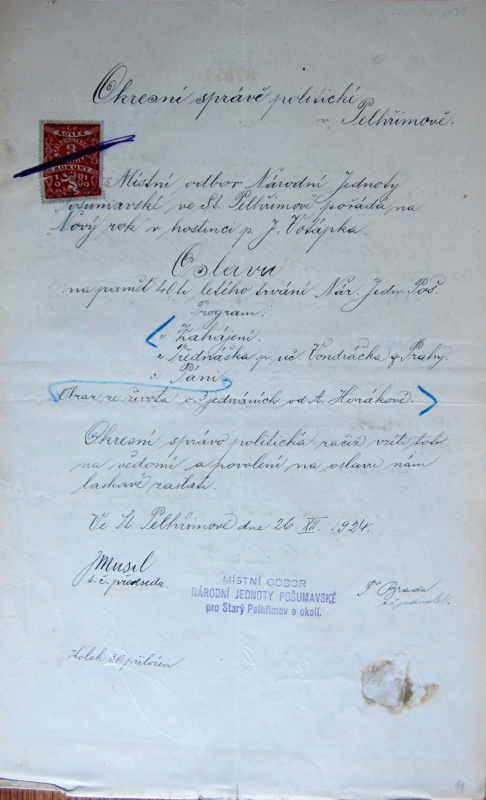 Okresní správě politické
v Pelhřimově.
KOLEK
3
KORUNY
Místní odbor Národní Jednoty
Pošumavské ve St. Pelhřimově pořádá na
Nový rok v hostinci p. J. Votápka
Oslavu
na paměť 40ti letého trvání Nár. Jedn. Poš.
Program:
Zahájení.
Přednáška p. uč. Vondráčka z Prahy.
"Páni"
Obraz ze života o jednáních od A. Horákové.
Okresní správo politická račiž vzíti toto
na vědomí a povolení na oslavu nám
laskavě zaslati.
Ve St. Pelhřimově dne 26. XII. 1924.
JMusil
t. č. předseda.
MÍSTNÍ ODBOR
NÁRODNÍ JEDNOTY POŠUMAVSKÉ
pro Starý Pelhřimov a okolí.
F Brada
t. č. jednatel.
Kolek 3K přiložen.